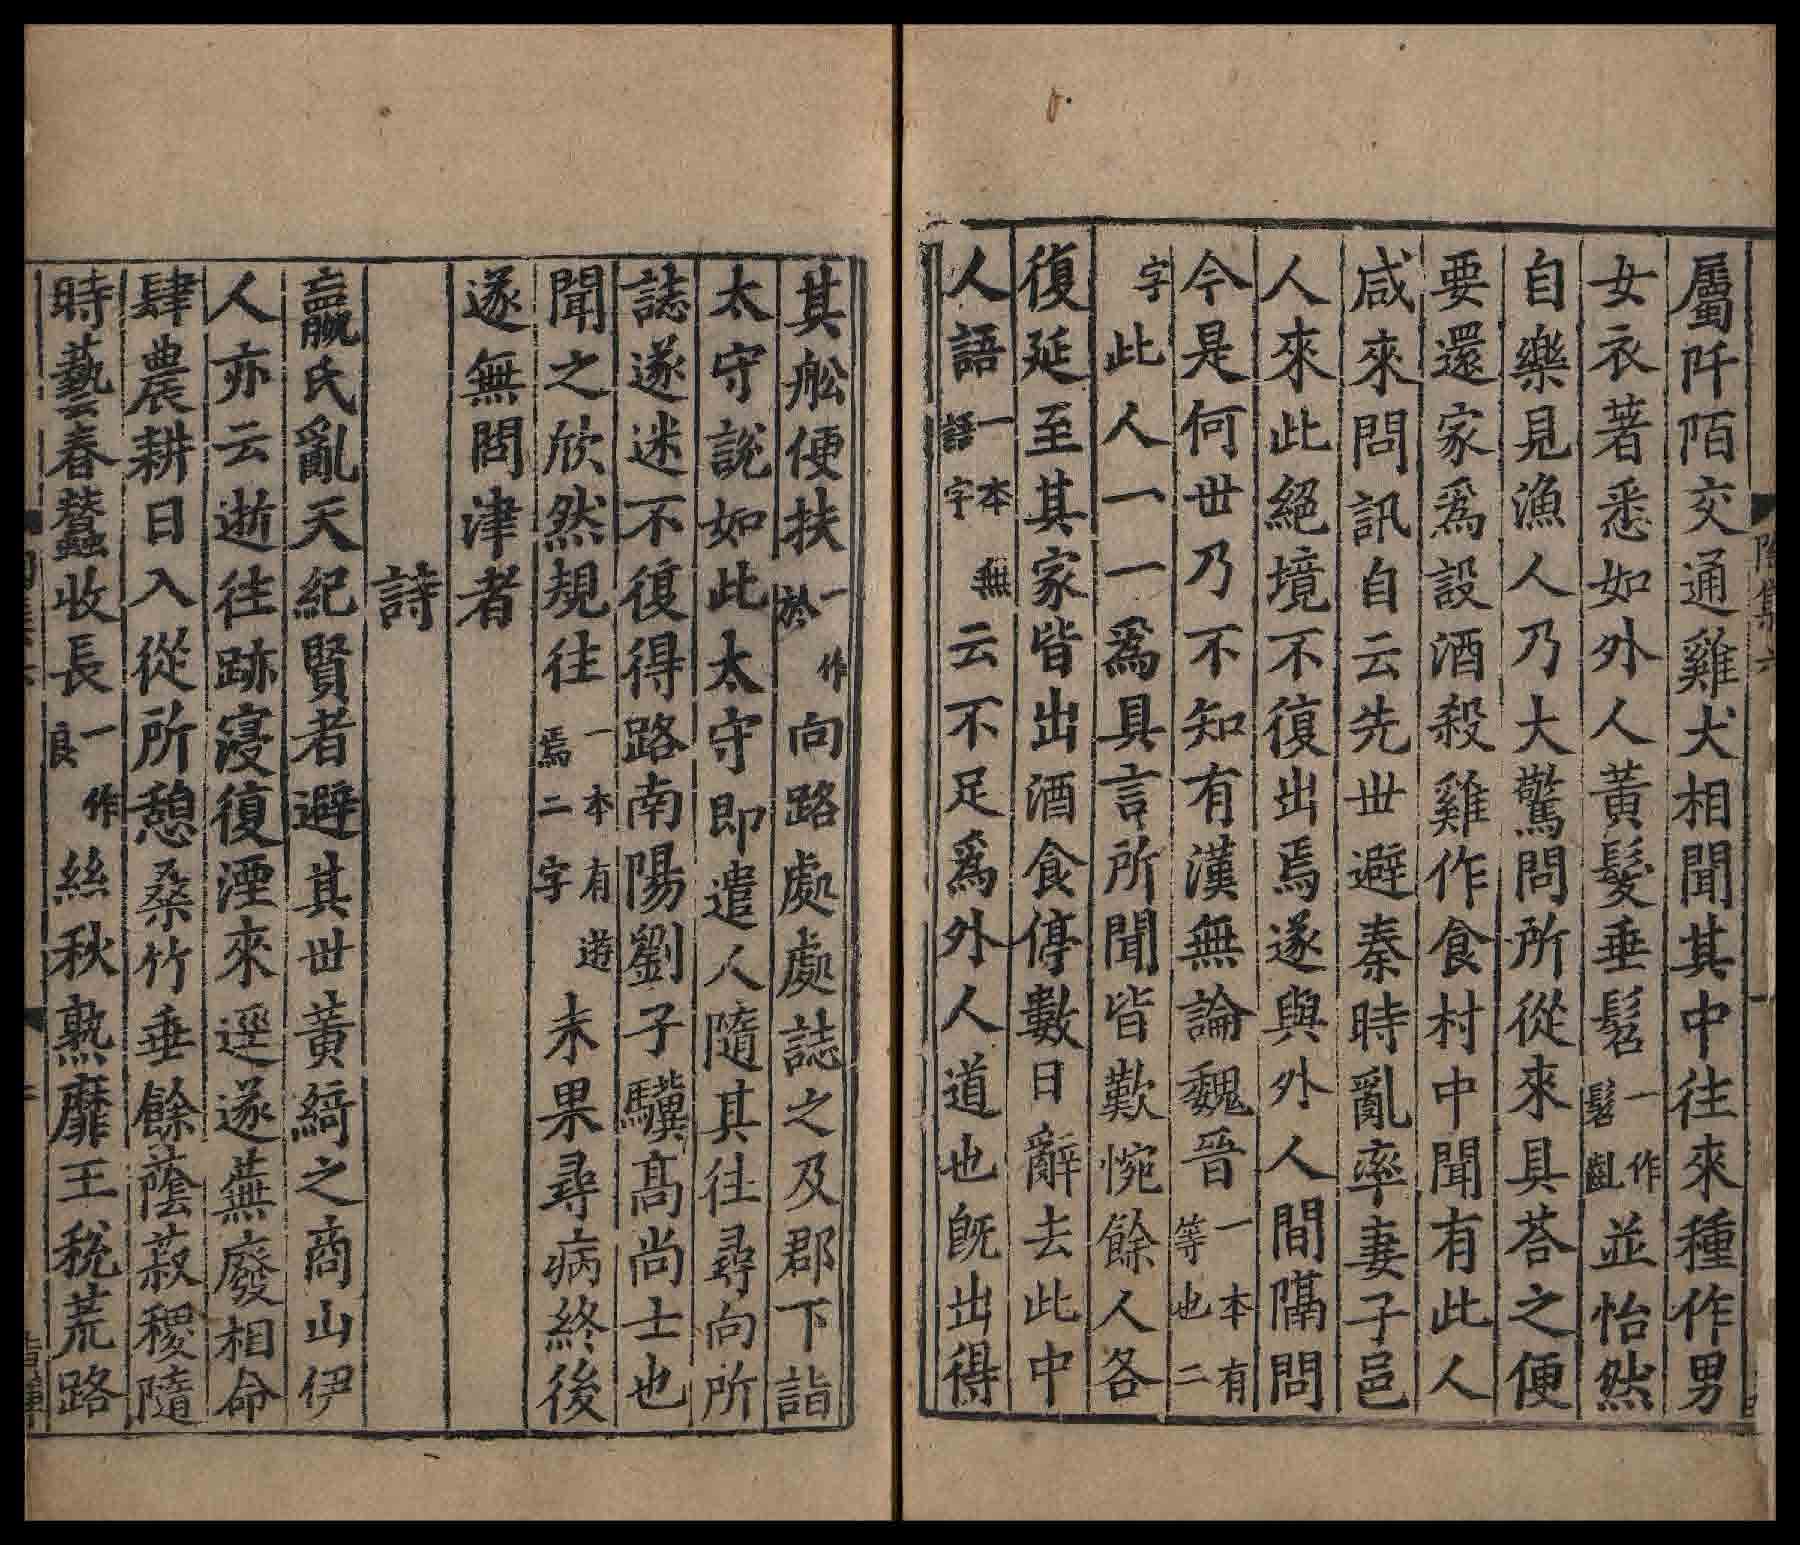 屬阡陌交通雞犬相聞其中往來種作男
女衣著悉如外人黃髮垂髫一作髫齓並怡然
自樂見漁人乃大驚問所從來具荅之便
要還家爲設酒殺雞作食村中聞有此人
咸來問訊自云先世避秦時亂率妻子邑
人來此絕境不復出焉遂與外人間隔問
今是何世乃不知有漢無論魏晉一本有等也二
字此人一一爲具言所聞皆歎惋餘人各
復延至其家皆出酒食停數日辭去此中
人語一本無語字云不足爲外人道也旣出得
其舩便扶一作於向路處處誌之及郡下詣
太守說如此太守即遣人隨其往尋向所
誌遂迷不復得路南陽劉子驥髙尚士也
聞之欣然規往一本有遊焉二字未果尋病終後
遂無問津者
詩
嬴氏亂天紀賢者避其世黃綺之商山伊
人亦云逝往跡寖復湮來逕遂蕪廢相命
肆農耕日入從所憩桑竹垂餘蔭菽稷隨
時藝春蠶收長一作良絲秋熟靡王稅荒路